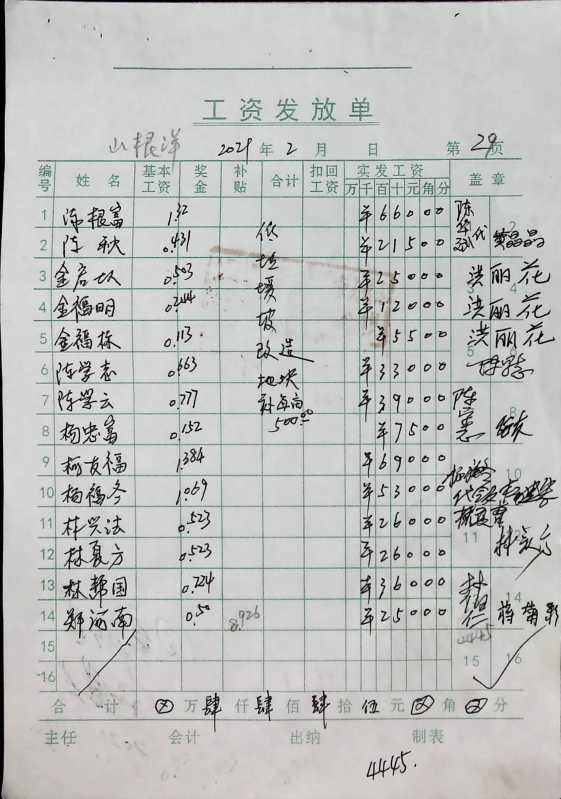 工资发放单
山根洋 2021 年 2 月 日 第 29 页
编号 姓名 基本工资 奖金 补贴 合计 扣回工资 实发工资 盖章
万 千 百 十 元 角 分
1 陈根富 1.32 ¥66000
2 陈秋 0.431 ¥21500
3 金启从 0.503 ¥25000 洪丽花
4 金福明 0.244 ¥12000 洪丽花
5 金福栋 0.113 ¥5500 洪丽花
6 陈学志 0.663 ¥33000
7 陈学云 0.777 ¥39000
8 杨忠富 0.152 ¥7500
9 柯友福 1.384 ¥69000
10 杨福冬 1.069 ¥53000
11 林兴法 0.523 ¥26000
12 林夏方 0.523 ¥26000
13 林帮国 0.724 ¥36000
14 郑海南 0.50 8.926 ¥25000 蒋菊彩
15
16
低丘缓坡改造地块补每亩500.00
合计 ⊗ 万 肆 仟 肆 佰 肆 拾 伍 元 ⊗ 角 ⊗ 分
主任 会计 出纳 制表
4445.